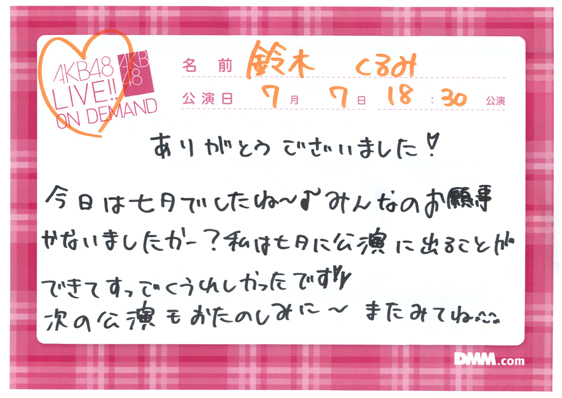 AKB48
LIVE!!
ON DEMAND
AKB
48
名前 鈴木 くるみ
公演日 7月 7日 18:30 公演
ありがとうございました!
今日は七月でしたね〜♪みんなのお願事
かないましたかー?私は七月に公演に出ることが
できてすっごくうれしかったです
次の公演もおたのしみに〜 またみてね
DMM.com